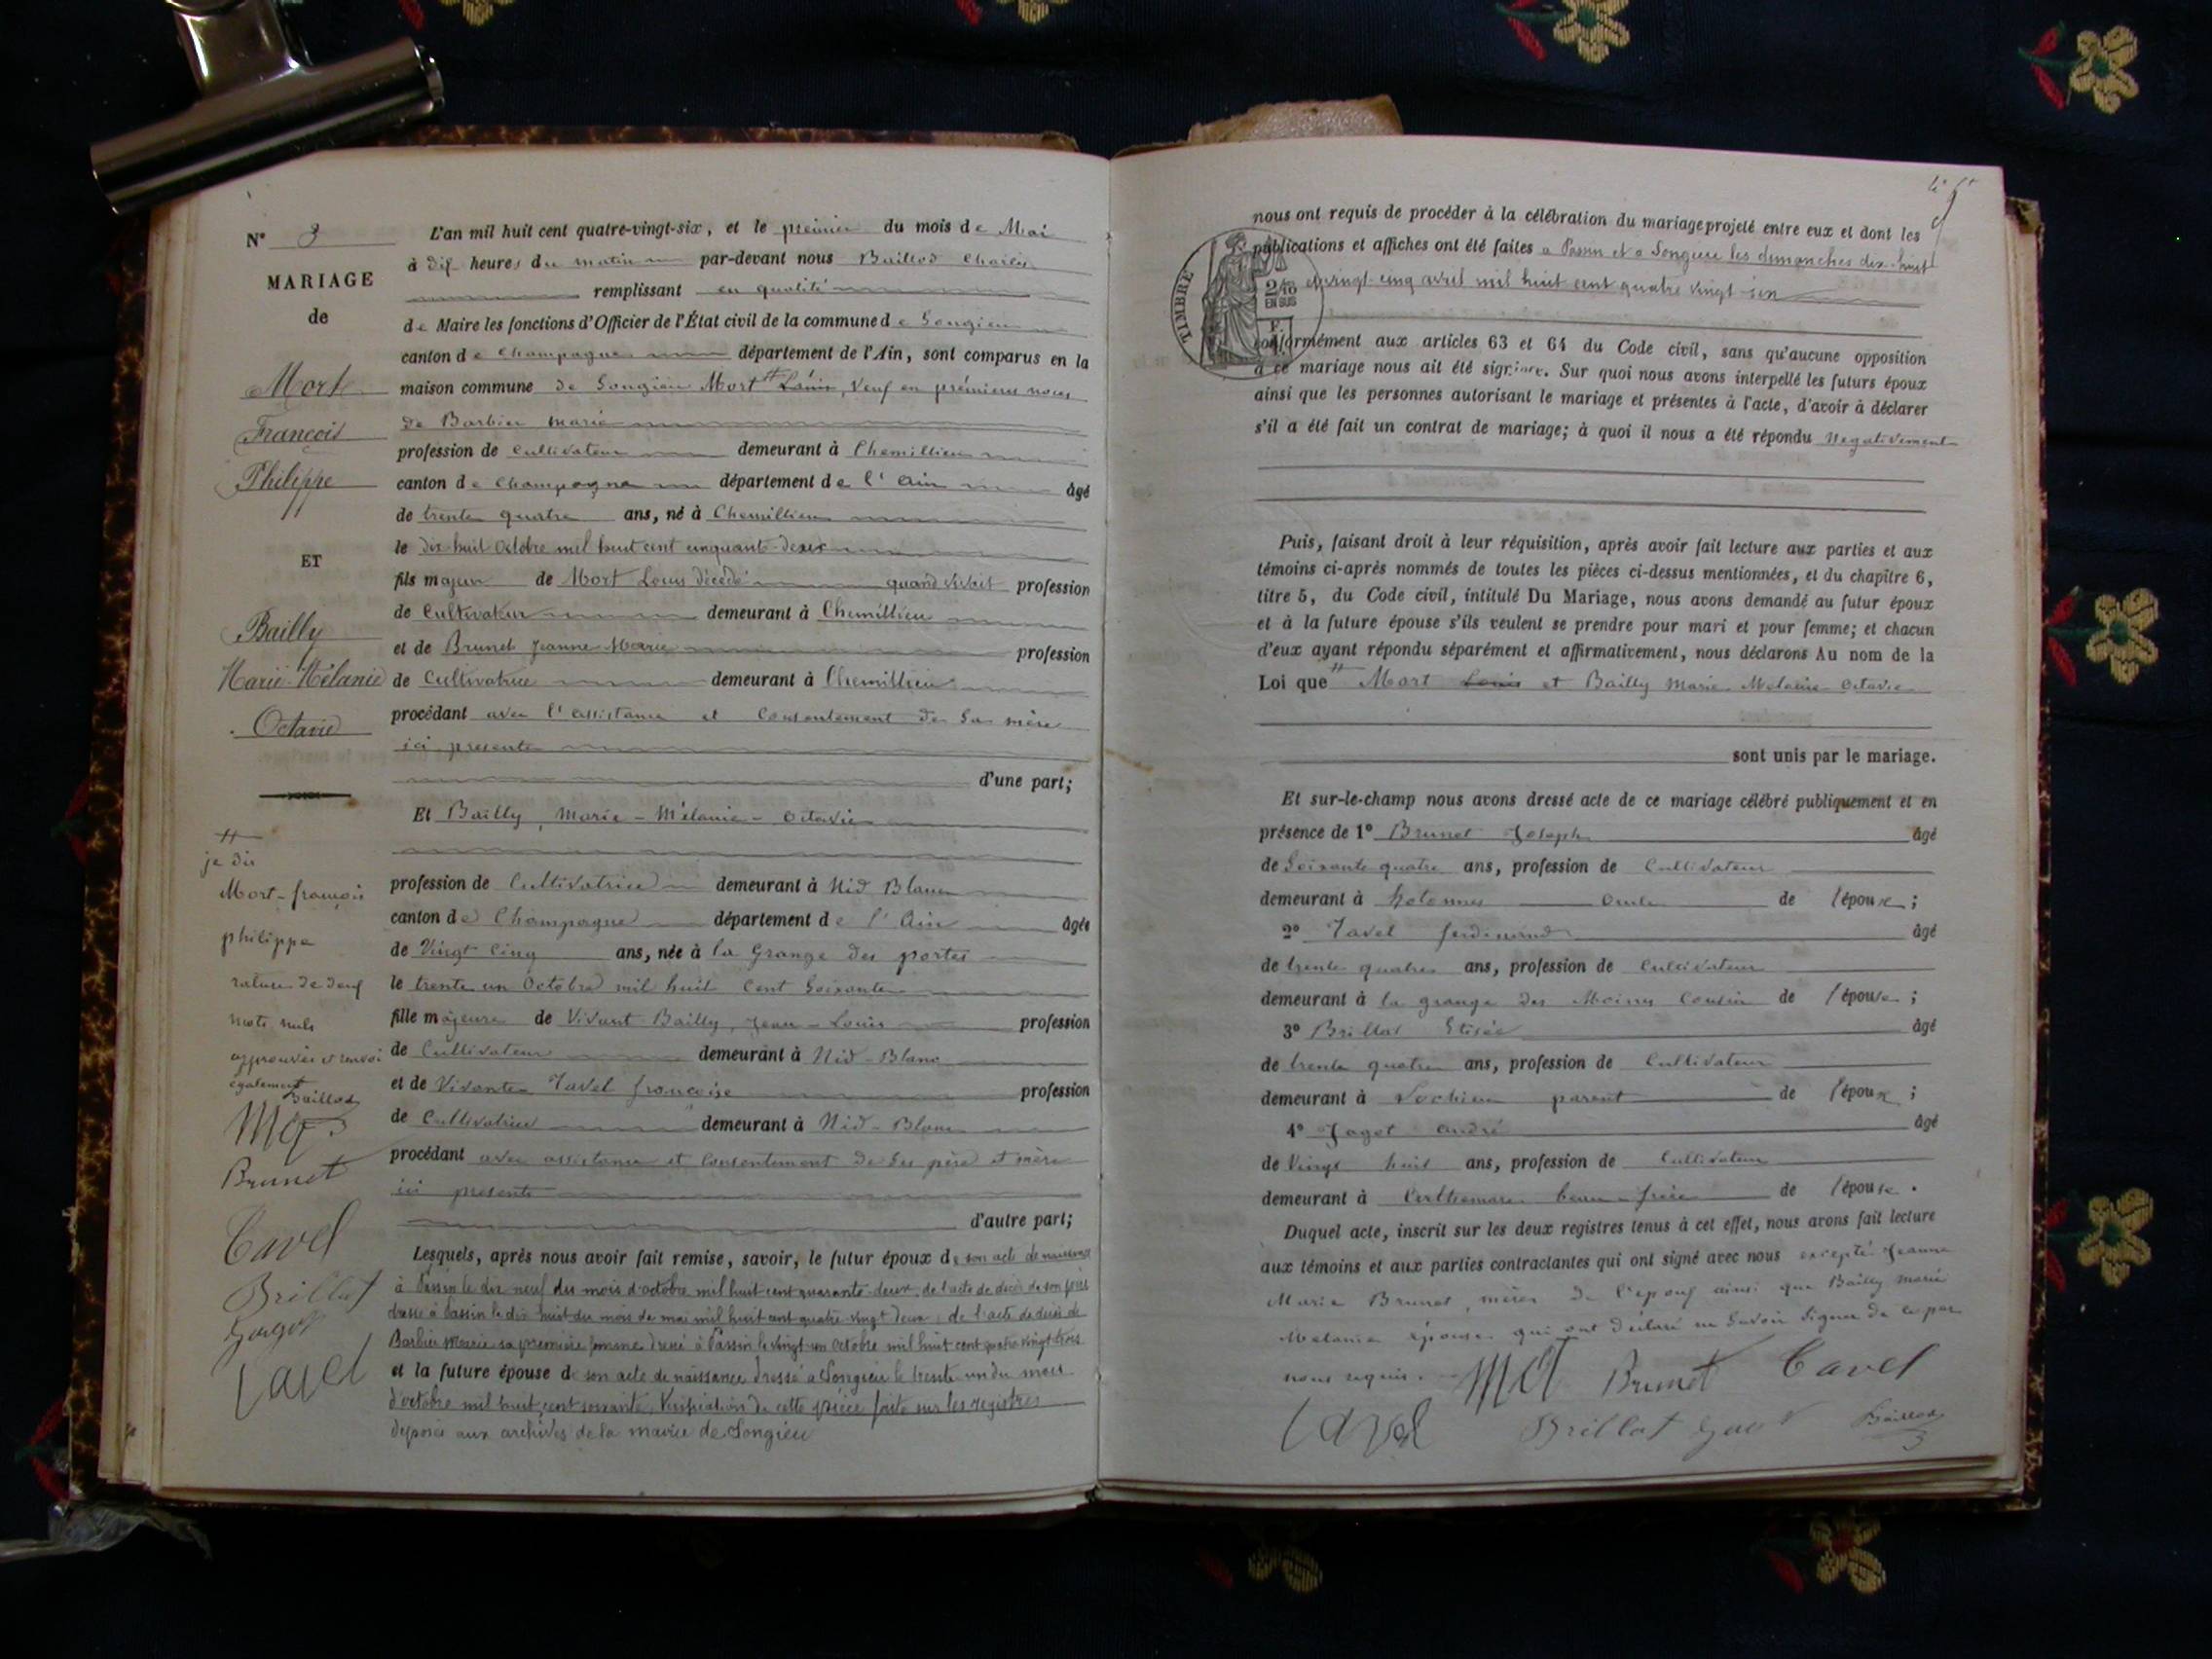 N° 3
MARIAGE
de
Mort
François
Philippe
ET
Bailly
Marie-Mélanie
Octavie
je dis
Mort-françois
philippe
rature de deux
mots nuls
approuvée et renvoi
également
Baillod
Brunet
Tavel
Brillat
Tavel
L'an mil huit cent quatre-vingt-six, et le premier du mois de Mai
à dix heures du matin par-devant nous Baillod Charles
remplissant en qualité
de Maire les fonctions d'Officier de l'État civil de la commune de Songieu
canton de Champagne département de l'Ain, sont comparus en la
maison commune de Songieu Mort # Louis, Veuf en premières noces
de Barbier marie
profession de Cultivateur demeurant à Chemillieu
canton de Champagne département de l'Ain âgé
de trente quatre ans, né à Chemillieu
le dix-huit Octobre mil huit cent cinquante-deux
fils majeur de Mort Louis décédé quand vivait profession
de Cultivateur demeurant à Chemillieu
et de Brunet Jeanne Marie profession
de Cultivatrice demeurant à Chemillieu
procédant avec l'assistance et Consentement de Sa mère
ici présente
d'une part;
Et Bailly, Marie-Mélanie-Octavie
profession de Cultivatrice demeurant à Nid Blanc
canton de Champagne département de l'Ain âgée
de Vingt Cinq ans, née à la Grange des portes
le trente un Octobre mil huit Cent Soixante
fille majeure de Vivant Bailly, Jean-Louis profession
de Cultivateur demeurant à Nid-Blanc
et de Vivante Tavel françoise profession
de Cultivatrice demeurant à Nid-Blanc
procédant avec assistance et Consentement de Ses père et mère
ici présents
d'autre part;
Lesquels, après nous avoir fait remise, savoir, le futur époux de son acte de naissance
à Passin le dix neuf du mois d'octobre mil huit cent quarante-deux, de l'acte de décès de son père
dressé à Passin le dix huit du mois de mai mil huit cent quatre-vingt deux; de l'acte de décès de
Barbier Marie sa première femme dressé à Passin le vingt-un Octobre mil huit cent quatre vingt trois
et la future épouse de son acte de naissance dressé à Songieu le trente-un du mois
d'octobre mil huit cent soixante. Vérification de cette pièce faite sur les registres
déposés aux archives de la mairie de Songieu
nous ont requis de procéder à la célébration du mariage projeté entre eux et dont les
publications et affiches ont été faites à Passin et à Songieu les dimanches dix-huit
et vingt-cinq avril mil huit cent quatre vingt-six
TIMBRE
2/10
EN SUS
conformément aux articles 63 et 64 du Code civil, sans qu'aucune opposition
à ce mariage nous ait été signifiée. Sur quoi nous avons interpellé les futurs époux
ainsi que les personnes autorisant le mariage et présentes à l'acte, d'avoir à déclarer
s'il a été fait un contrat de mariage; à quoi il nous a été répondu Négativement
Puis, faisant droit à leur réquisition, après avoir fait lecture aux parties et aux
témoins ci-après nommés de toutes les pièces ci-dessus mentionnées, et du chapitre 6,
titre 5, du Code civil, intitulé Du Mariage, nous avons demandé au futur époux
et à la future épouse s'ils veulent se prendre pour mari et pour femme; et chacun
d'eux ayant répondu séparément et affirmativement, nous déclarons Au nom de la
Loi que # Mort Louis et Bailly Marie Mélanie Octavie
sont unis par le mariage.
Et sur-le-champ nous avons dressé acte de ce mariage célébré publiquement et en
présence de 1° Brunet Joseph âgé
de Soixante quatre ans, profession de Cultivateur
demeurant à hotonnes oncle de l'époux;
2° Tavel ferdinand âgé
de trente quatre ans, profession de Cultivateur
demeurant à la grange des Moines Cousin de l'épouse;
3° Brillat Elisée âgé
de trente quatre ans, profession de Cultivateur
demeurant à Lochieu parent de l'époux;
4° Jagot André âgé
de Vingt huit ans, profession de Cultivateur
demeurant à beau-frère de l'épouse.
Duquel acte, inscrit sur les deux registres tenus à cet effet, nous avons fait lecture
aux témoins et aux parties contractantes qui ont signé avec nous excepté Jeanne
Marie Brunet, mère de l'époux ainsi que Bailly marie
Mélanie épouse qui ont déclaré ne Savoir Signer de ce par
nous requis.
Brunet Tavel
Tavel Brillat Baillod